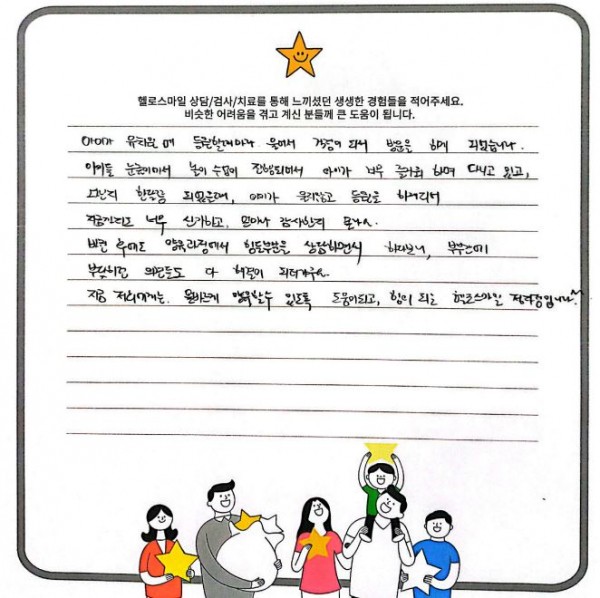 헬로스마일 상담/검사/치료를 통해 느끼셨던 생생한 경험들을 적어주세요.
비슷한 어려움을 겪고 계신 분들께 큰 도움이 됩니다.
아이가 유치원에 등원할때마다 울어서 걱정이 되서 방문을 하게 되었습니다.
아이들 눈높이에서 놀이 수업이 진행되면서 아이가 너무 즐거워 하며 다니고 있고,
한달도 되었는데, 아이가 울지않고 등원을 하여서
지금까지도 너무 신기하고, 얼마나 감사한지 몰라요.
후에도 양육과정에서 힘든부분을 상담하면서 하다보니, 부부간에
부딪히던 의견들도 다 해결이 되더라구요.
지금 저희에게는 올바르게 양육할수 있도록 도움이되고, 힘이 되는 헬로스마일